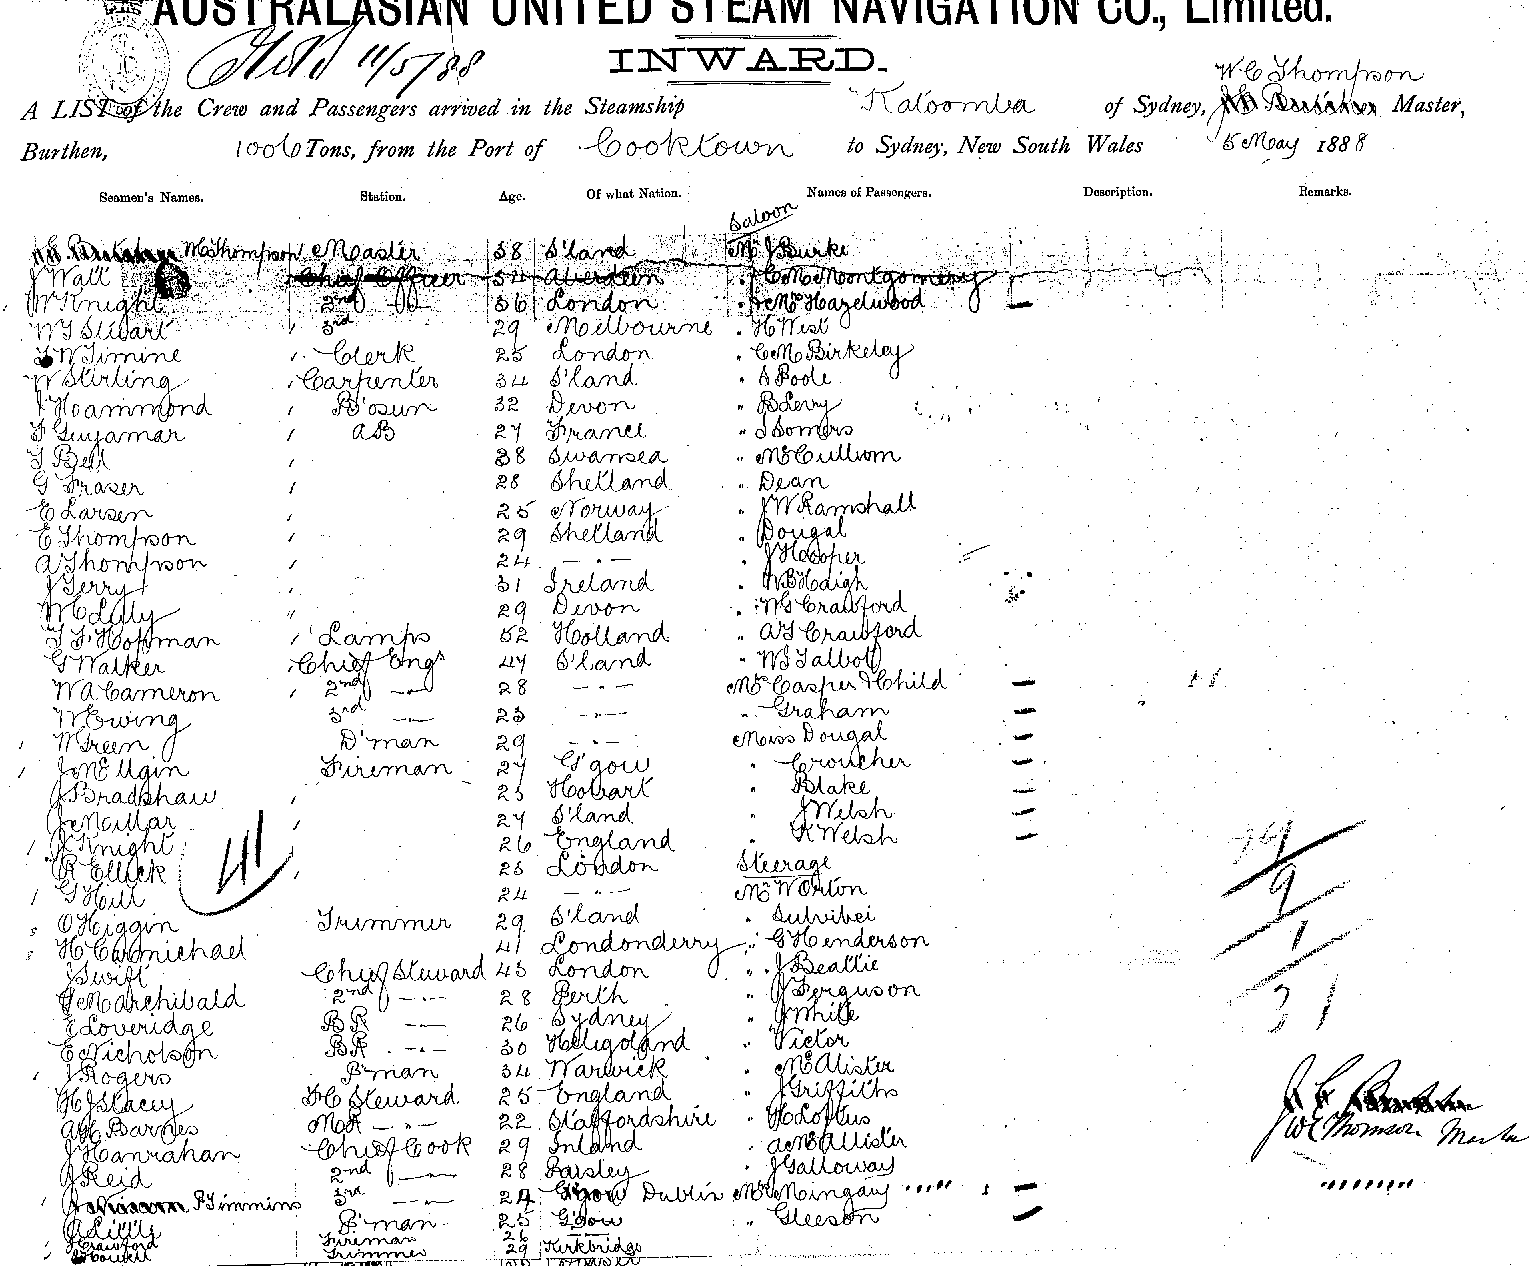 AUSTRALASIAN UNITED STEAM NAVIGATION CO., Limited.
11/5/88
INWARD.
W C Thompson
A LIST of the Crew and Passengers arrived in the Steamship Katoomba of Sydney, Master,
Burthen, 1006 Tons, from the Port of Cooktown to Sydney, New South Wales 5 May 1888
Seamen's Names. Station. Age. Of what Nation. Names of Passengers. Description. Remarks.
Saloon
W C Thompson Master 38 S'land Mr J Burke
J Watt Chief Officer 54 Aberdeen " J C McMontgomery
W Knight 2nd " 36 London " Mrs Hazelwood —
W T Stuart 3rd 29 Melbourne " H West
W Timine " Clerk 25 London " C M Birkeley
W Stirling " Carpenter 34 S'land " S Poole
J Hoammond B'osun 32 Devon " B Levy
F Guyamar " AB 27 France " J Somers
T Bell " 38 Swansea " McCullum
G Fraser " 28 Shetland " Dean
E Larsen " 25 Norway " J W Ramshall
E Thompson " 29 Shetland " Dougal
A Thompson 24 — " — " J Hooper
J Terry 31 Ireland " W B Haigh
W C Lilly " 29 Devon " W G Crawford
T F Hoffman " Lamps 52 Holland " A T Crawford
G Walker " Chief Engr 47 S'land " W S Talbot
W A Cameron " 2nd — " — 28 — " — Mrs Casper & Child —
W Ewing 3rd — " — 23 — " — " Graham —
W Green D'man 29 — " — Miss Dougal —
J McElgin Fireman 27 G'gow " Croucher —
J Bradshaw " 23 Hobart " Blake —
J McMillar " 27 S'land " J Welsh —
J Knight " 26 England " K Welsh —
R Ellick " 23 London Steerage
G Hill 24 — " — Mr W Orton
O Higgin Trimmer 29 S'land " Sulvibei
H Carmichael 41 Londonderry " G Henderson
J Swift Chief Steward 43 London " J Beattie
G M Archibald 2nd — " — 28 Perth " J Ferguson
E Loveridge BR — " — 26 Sydney " J White
E Nicholson BR — " — 30 Heligoland " Victor
J Rogers P'man 34 Warwick " McAlister
H J Stacey F C Steward 25 England " J Griffiths
A H Barnes MR — " — 22 Staffordshire " H Loftus
J Hanrahan Chief Cook 29 Inland " A McAllister
J Reid 2nd — " — 28 Paisley " J Galloway
P Timmins 3rd — " — 24 Dublin Mrs Mingay —
A Lilly P'man 25 G'gow " Gleeson —
J Crawford Fireman 26
Trimmer 29 Kirkbridge
41
74
9
1
31
J W C Thomson Master